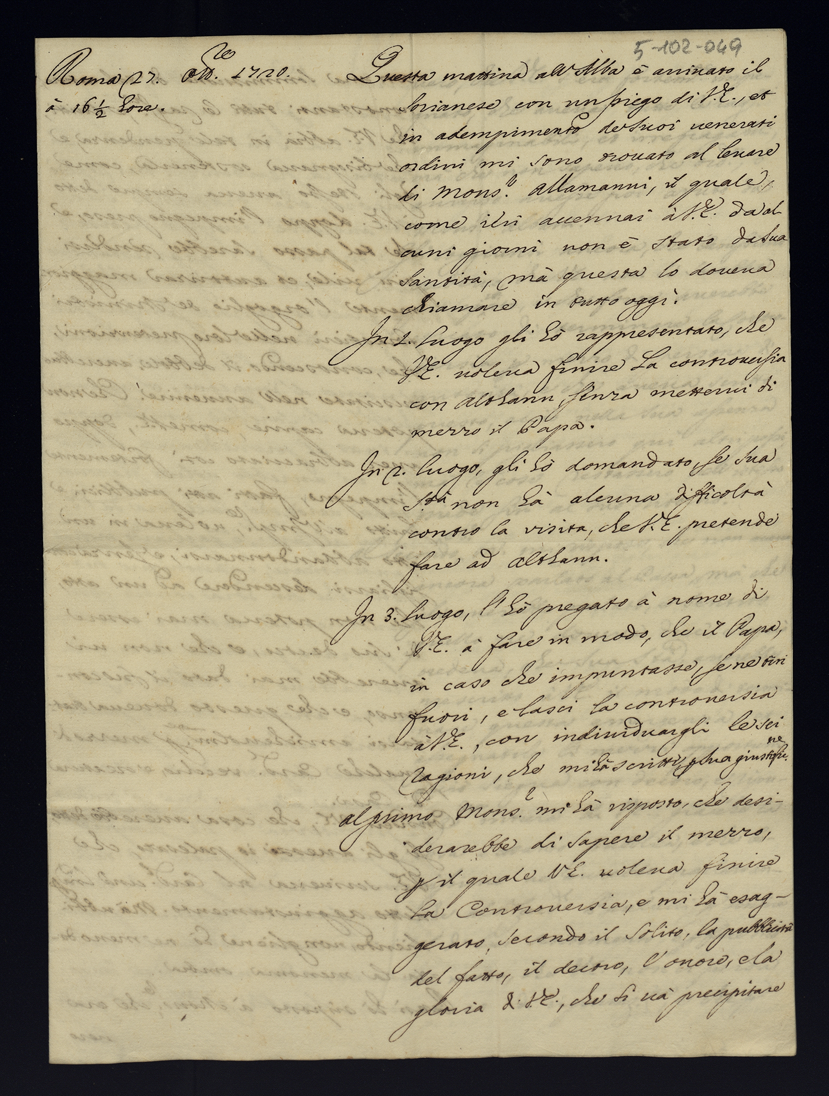 5-102-049
Roma 27. Ott.re 1720.
à 16 1/2 hore.
Questa mattina all'Alba è arrivato il
Sorianese con un piego di V.E., et
in adempimento de suoi venerati
ordini mi sono trovato al levare
di Mons.r Allamanni, il quale,
come ieri accennai à V.E. da al-
cuni giorni non è stato da Sua
Santità, mà questa lo doveva
chiamare in tutto oggi.
In 1. luogo gli hò rappresentato, che
V.E. voleva finire la controversia
con Althann, senza mettervi di
mezzo il Papa.
In 2. luogo, gli hò domandato, se Sua
S.tà non hà alcuna difficoltà
contro la visita, che V.E. pretende
fare ad Althann.
In 3. luogo, l'hò pregato à nome di
V.E. à fare in modo, che il Papa,
in caso che impuntasse, se ne tiri
fuori, e lasci la controversia
à V.E., con individuargli le sei
ragioni, che mi hà scritte p sua giustific.ne
al primo Mons.r mi hà risposto, che desi-
derarebbe di sapere il mezzo,
p il quale V.E. voleva finire
la Controversia, e mi hà esag-
gerato, secondo il solito, la pubblicità
del fatto, il decoro, l'onore, e la
gloria di V.E., che si và precipitare